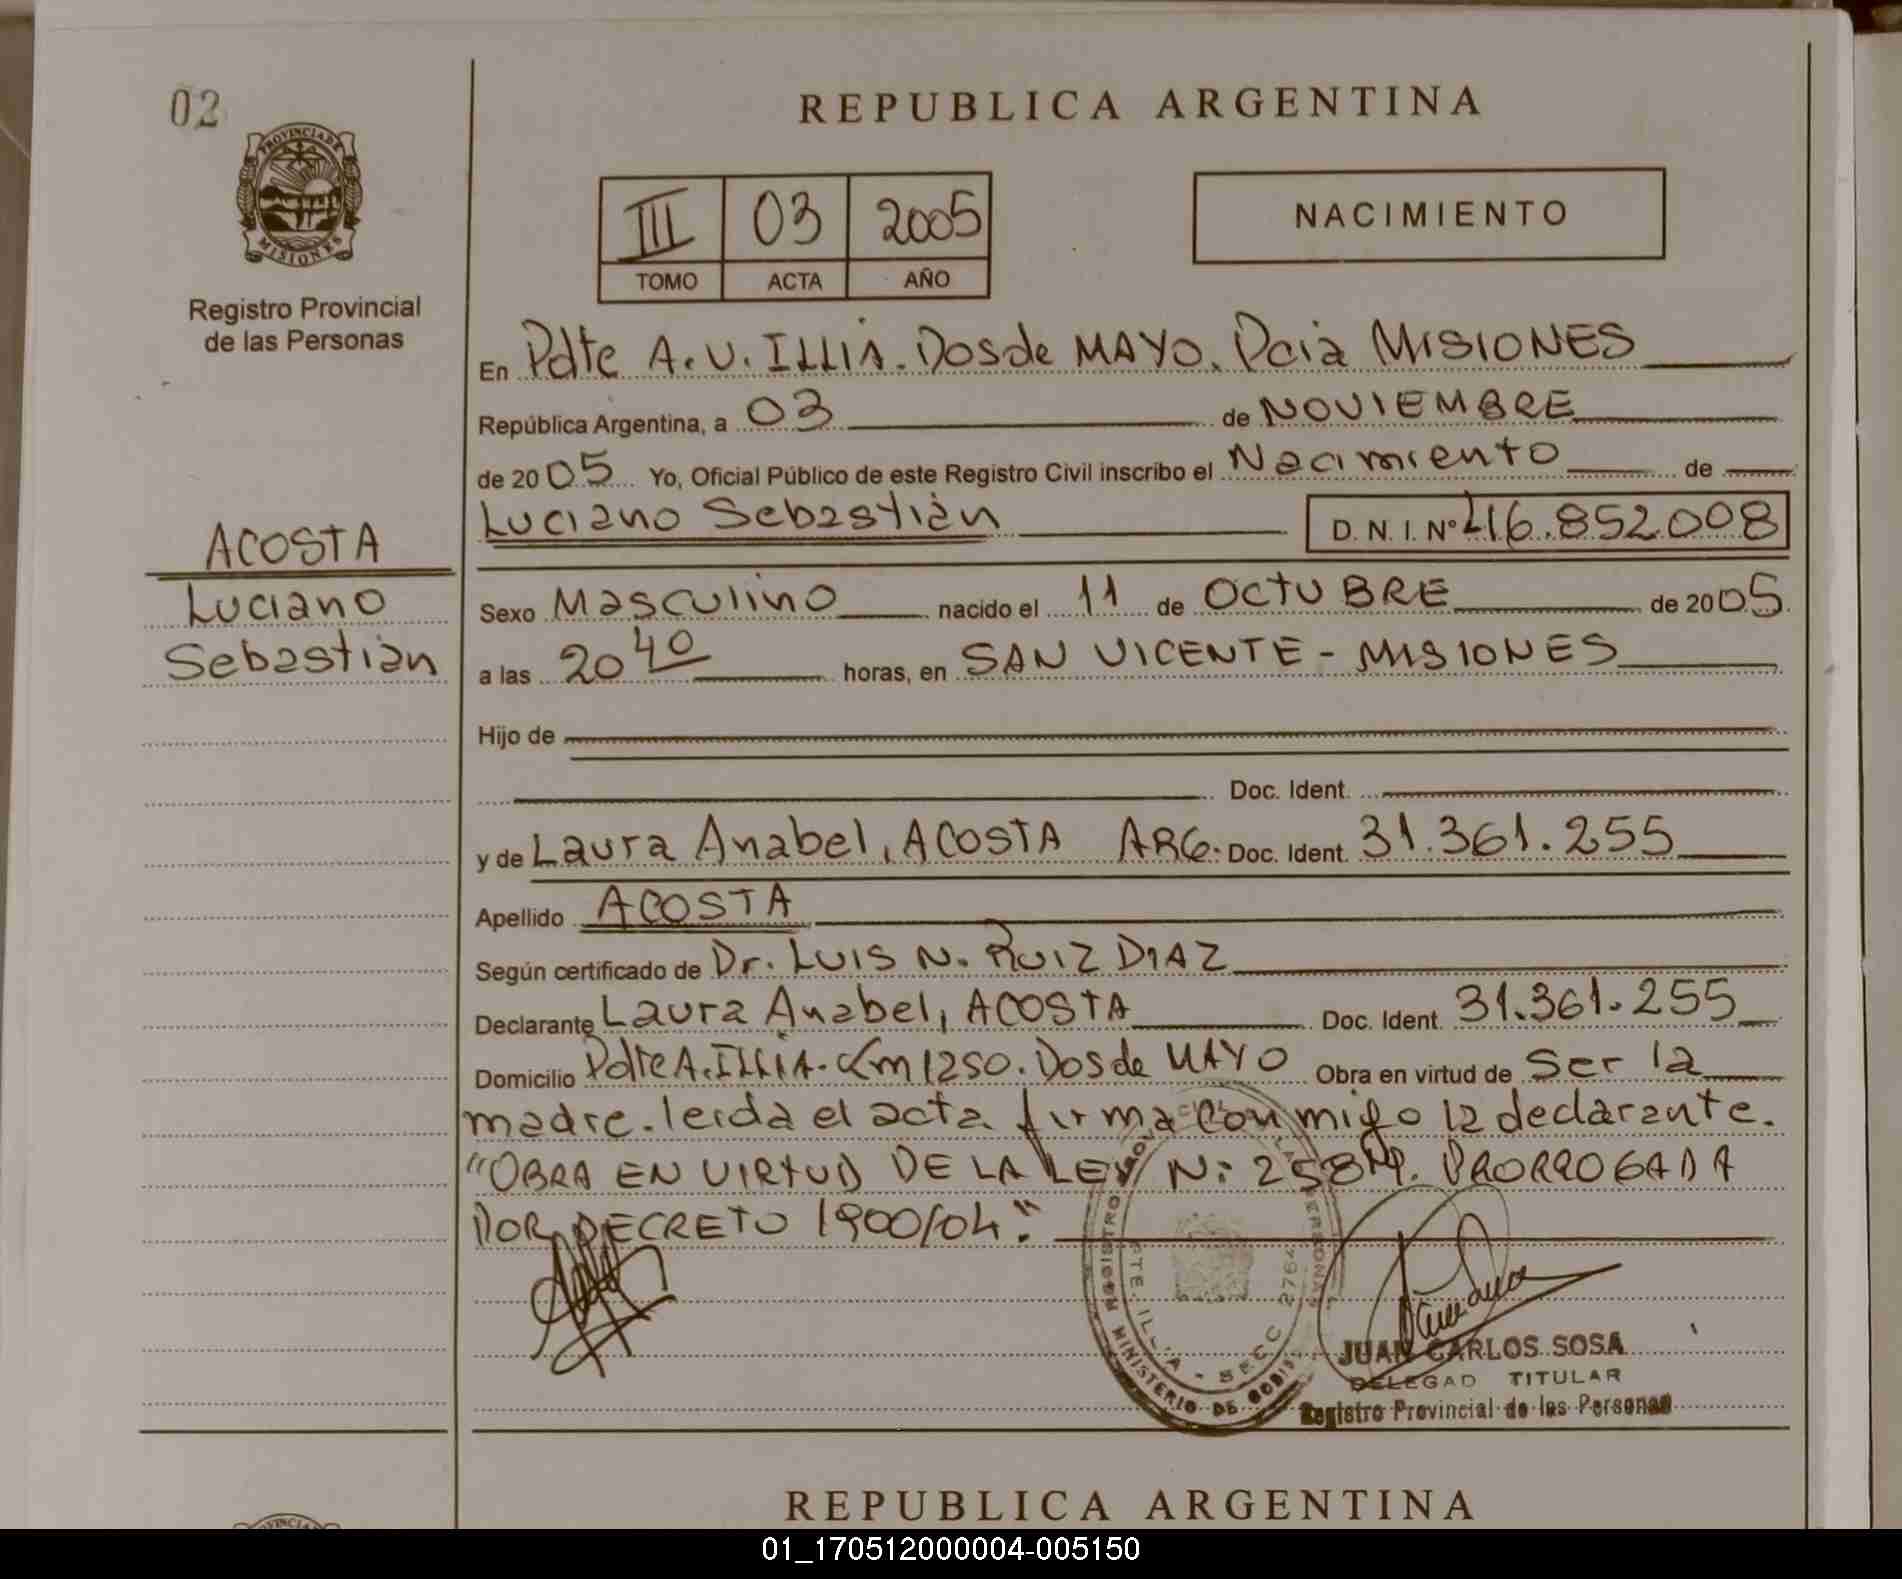 02
REPUBLICA ARGENTINA
PROVINCIA DE
MISIONES
Registro Provincial
de las Personas
III 03 2005
TOMO ACTA AÑO
NACIMIENTO
En Pdte A.U. ILLIA. Dos de MAYO. Pcia MISIONES
República Argentina, a 03 de NOVIEMBRE
de 2005 Yo, Oficial Público de este Registro Civil inscribo el Nacimiento de
Luciano Sebastián D.N.I. Nº 46.852.008
ACOSTA
Luciano
Sebastián
Sexo Masculino nacido el 11 de OCTUBRE de 2005
a las 20 40 horas, en SAN VICENTE - MISIONES
Hijo de
Doc. Ident.
y de Laura Anabel, ACOSTA ARG. Doc. Ident. 31.361.255
Apellido ACOSTA
Según certificado de Dr. LUIS N. RUIZ DIAZ
Declarante Laura Anabel, ACOSTA Doc. Ident. 31.361.255
Domicilio Pdte A. ILLIA. Km 1250. Dos de MAYO Obra en virtud de Ser la
madre. leida el acta firma conmigo la declarante.
"OBRA EN VIRTUD DE LA LEY N: 25819. PRORROGADA
POR DECRETO 1900/04."
REGISTRO PERSONAS
MINISTERIO DE
PTE. ILLIA - SECC 276
JUAN CARLOS SOSA
DELEGAD TITULAR
Registro Provincial de las Personas
REPUBLICA ARGENTINA
01_170512000004-005150